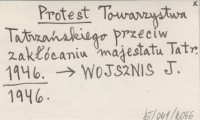 x
Protest Towarzystwa
Tatrzańskiego przeciw
zakłócaniu majestatu Tatr.
1946. → WOJSZNIS J.
1946.